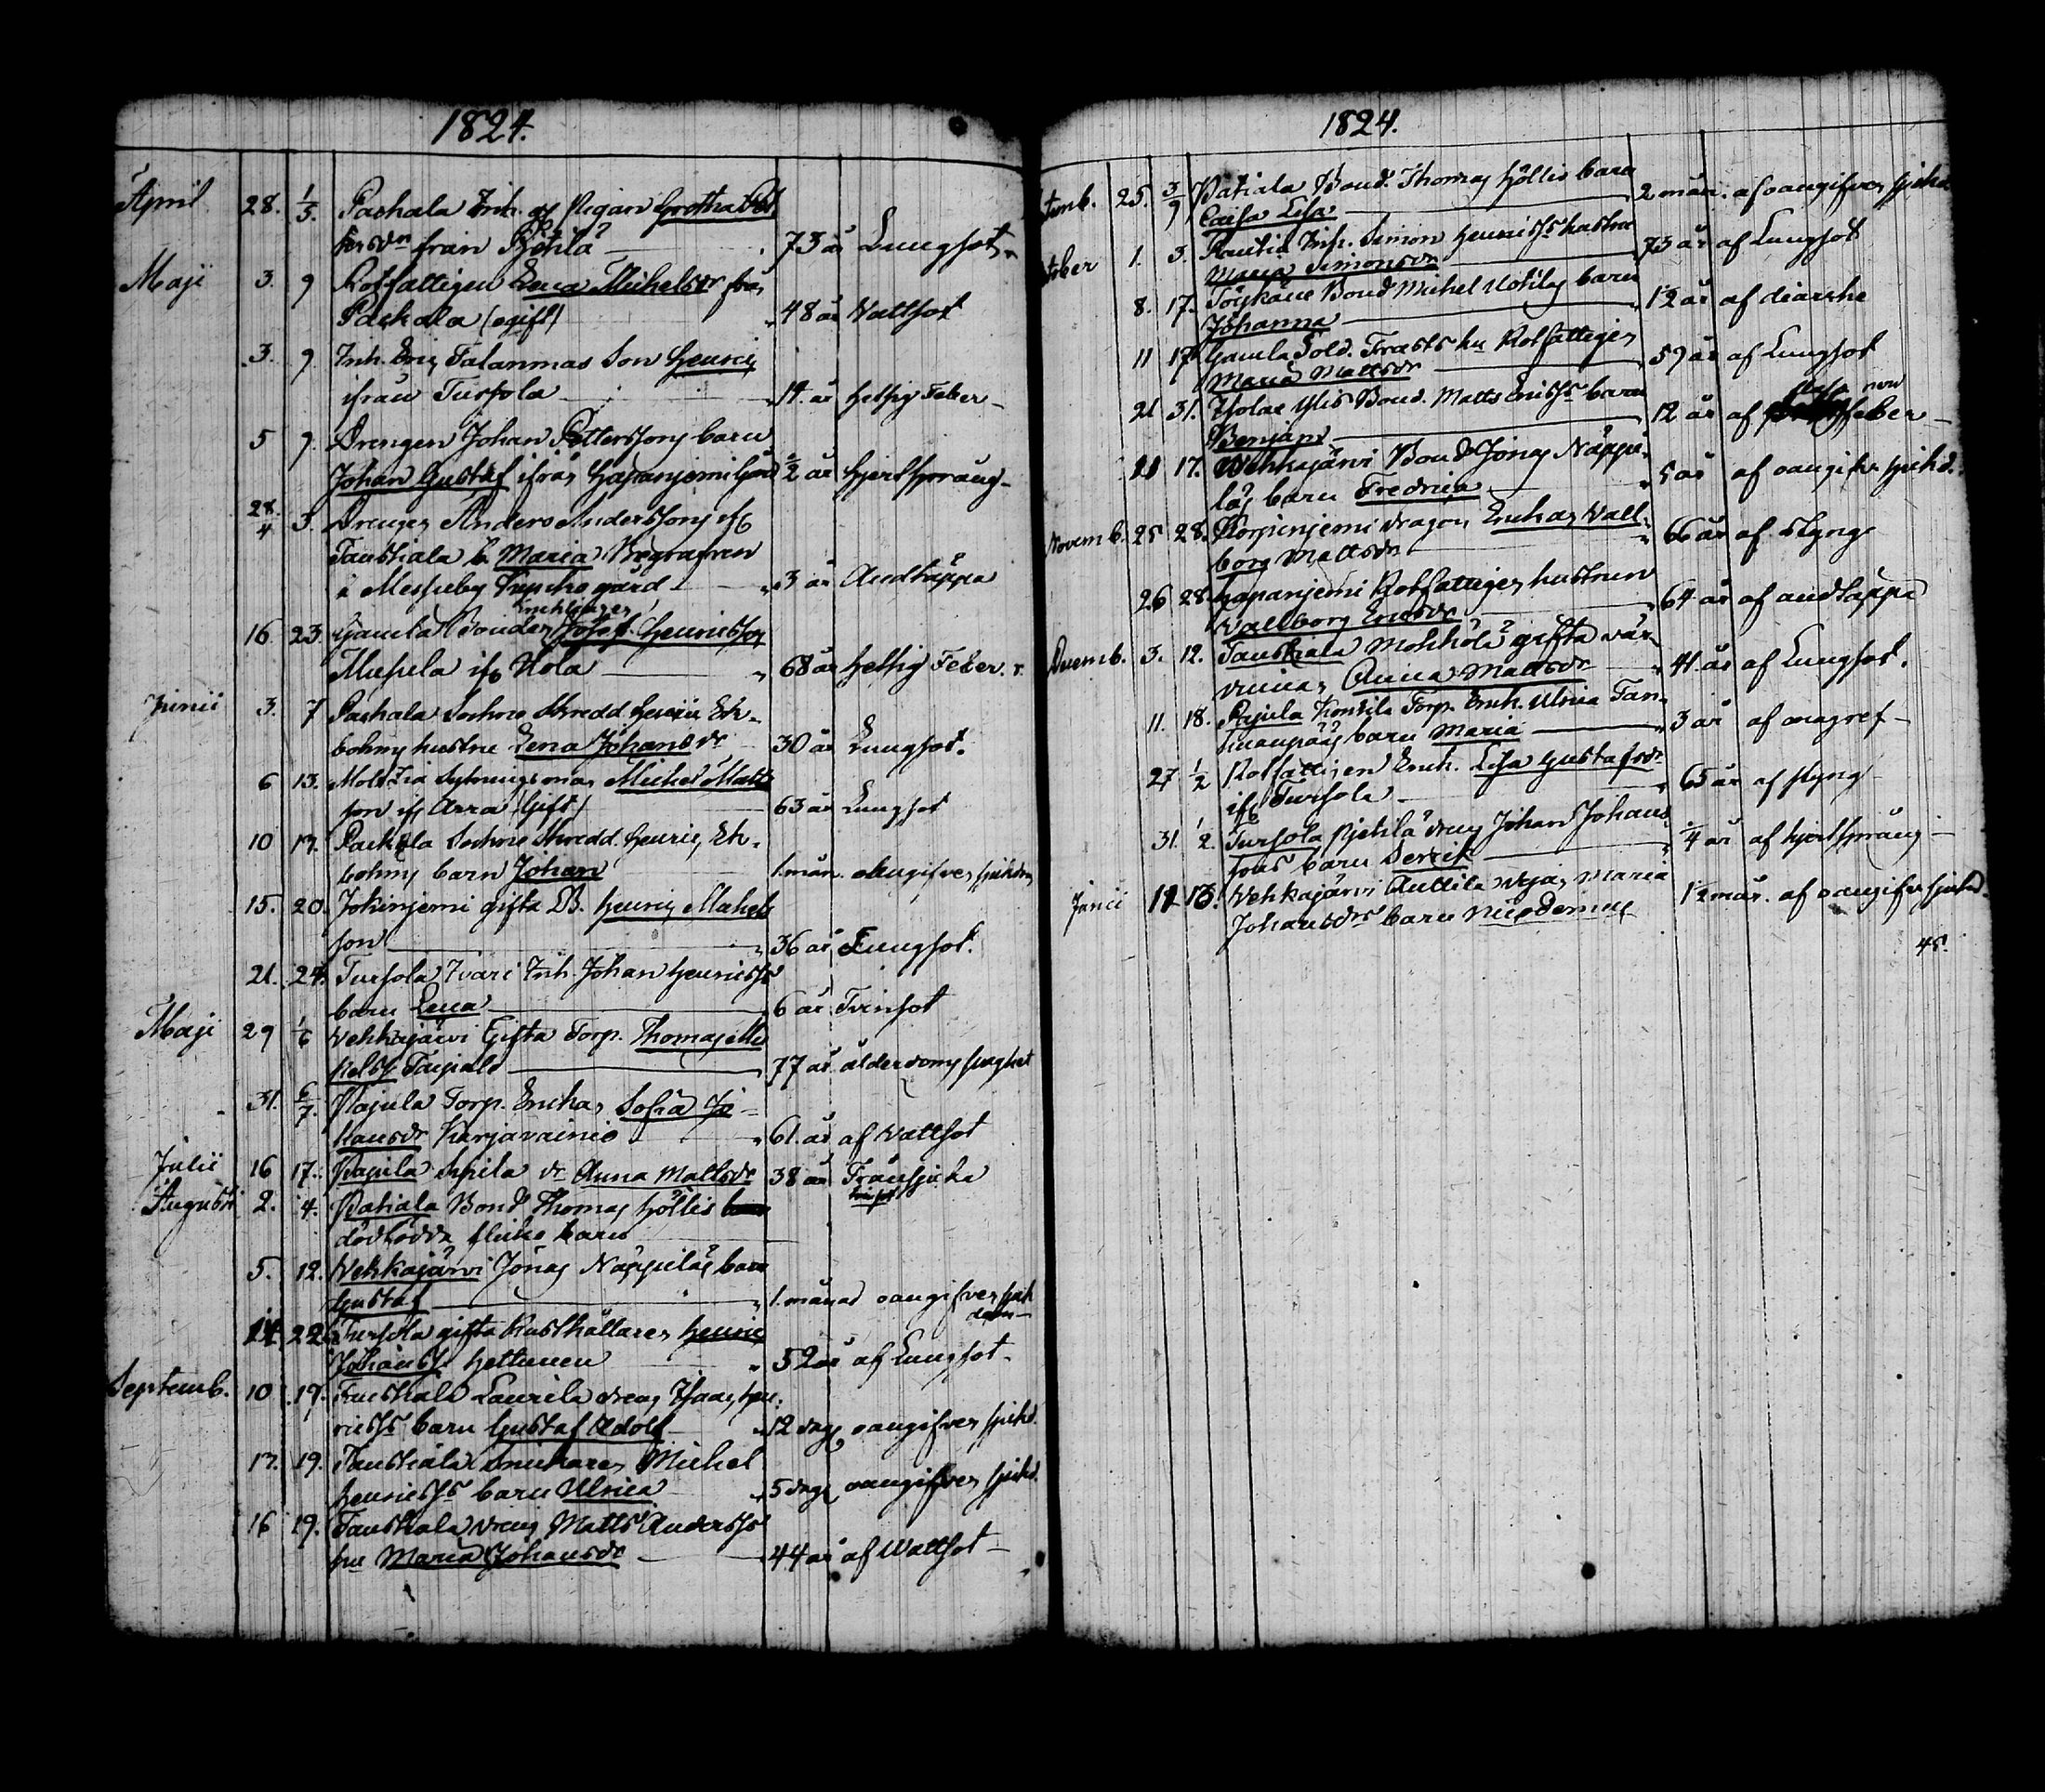 1824.
April 28. 1/5. Packala Inh. og Pigan Gretha Pet
tersdr från Pjetilä 73 år Lungsot
Maji 3. 9 Rotfattigen Lena Michelsdr från
Packala (ogift) 48 år Wattsot
3. 9. Inh. Eric Talanmas Son Henric
ifrån Tursola 14 år hetsig Feber
5 9. Drengen Johan Pettersons barn
Johan Gustaf ifrån Hapaniemi 1/2 år hjertsprång
28/4 3. Drengen Anders Anderssons if
Taustiala b. Maria Begrafven
i Messuby kyrkogård 3 år Andtäppa
Enklingen
16 23 Gamla Bonden Josef Henricsson
if Uola 68 år hetsig Feber
Junii 3. 7 Packala Sockne Skredd Henric Ek-
bohms hustru Lena Johansdr 30 år Lungsot.
6 13. Sytningsman Michel Matts
son if Arra (Gift) 63 år Lungsot
10 17. Packala Sockne Skredd. Henric Ek-
bohms barn Johan 1. mån. oangifven sjukdom
15. 20. Jokiniemi gifta B. Henric Michels
son 36 år Lungsot.
21. 24. Tursola Ivari Inh. Johan Henricss
barn Lena 6 år Tvinsot
Maji 29 1/6 Vehkajärvi Gifta Torp. Thomas Mi
kelss Taipale 77 år ålderdoms svaghet
31. 6/7. Pajula Torp. Enkan Sofia Jo-
hansdr Karjavainio 61. år af Wattsot
Julii 16 17. Pajula Anna Mattsdr 38 år Trånsjuka
tvinsot
Augusti 2. 4. Patiala Bond Thomas Höllis
dödfödda flicke barn
5. 12. Vehkajärvi Jonas Näppiläs barn
Gustaf 1. månad oangifven sjuk
dom
14 22 Tursola gifta Rusthållaren Henric
Johanss Hettunen 52 år af Lungsot
Septemb. 10 19. Taustiala Laurila dreng Isaac Hen-
ricss barn Gustaf Adolf 12 dagr oangifven sjukd.
17. 19. Taustiala Snickaren Michel
Henricss barn Ulrica 5 dagr oangifven sjukd.
16 19. Taustiala dreng Matts Anderss
hu Maria Johansdr 44 år af Wattsot
1824.
temb. 25. 3/9 Patiala Bond. Thomas Höllis barn
Caisa Lisa 2 mån. af oangifven sjukd
tober 1. 3. Rautia Inh. Simon Henricss hustru
Maria Simonsdr 73 år af Lungsot
8. 17. Bond Michel barn
Johanna 1/2 år af diarrhe
11 17 Gamla Sold. Frasts hu Rotfattigen
Maria Mattsdr 59 år af Lungsot
21 31. Bond. Matts Ericss barn
Benjam 12 år af feber
21 17. Vehkajärvi Bond Jonas Näppi-
läs barn Fredrica 5 år af oangifven sjukd.
Novemb. 25 28. Korpiniemi dragon Enkan Vall-
borg Mattsdr 66 år af styng
26 28. Hapaniemi Rotfattigen hustrun
Vallborg Ericsdr 64 år af andtäppa
Decemb. 3. 12. Taustiala Mokkölä gifta vär-
dinnan Anna Mattsdr 41. år af Lungsot.
11. 18. Pajula Konsila Torp. Enk. Ulrica Tam-
barn Maria 3 år af
27 1/2 Rotfattigen Enk. Lisa Gustafsdr
if Tursola 65 år af styng
31. 1/2. Tursola Pjetilä dreng Johan Johans-
sons barn 1/4 år af hjertsprång
Junii 11 13. Vehkajärvi Anttila pigan Maria
Johansdrs barn Nicodemus 1/2 mån. af oangifven sjukd.
45.